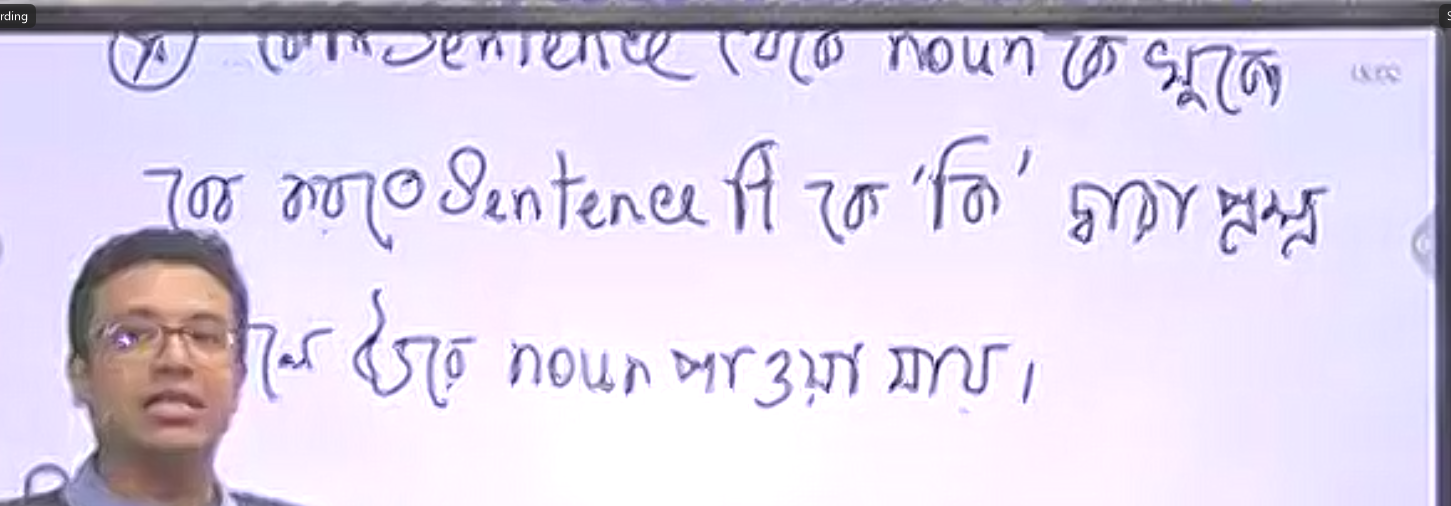 rding
কোন Sentence থেকে noun কে খুজে
বের করতে Sentence টি কে 'কি' দ্বারা প্রশ্ন
উত্তরে noun পাওয়া যাবে।